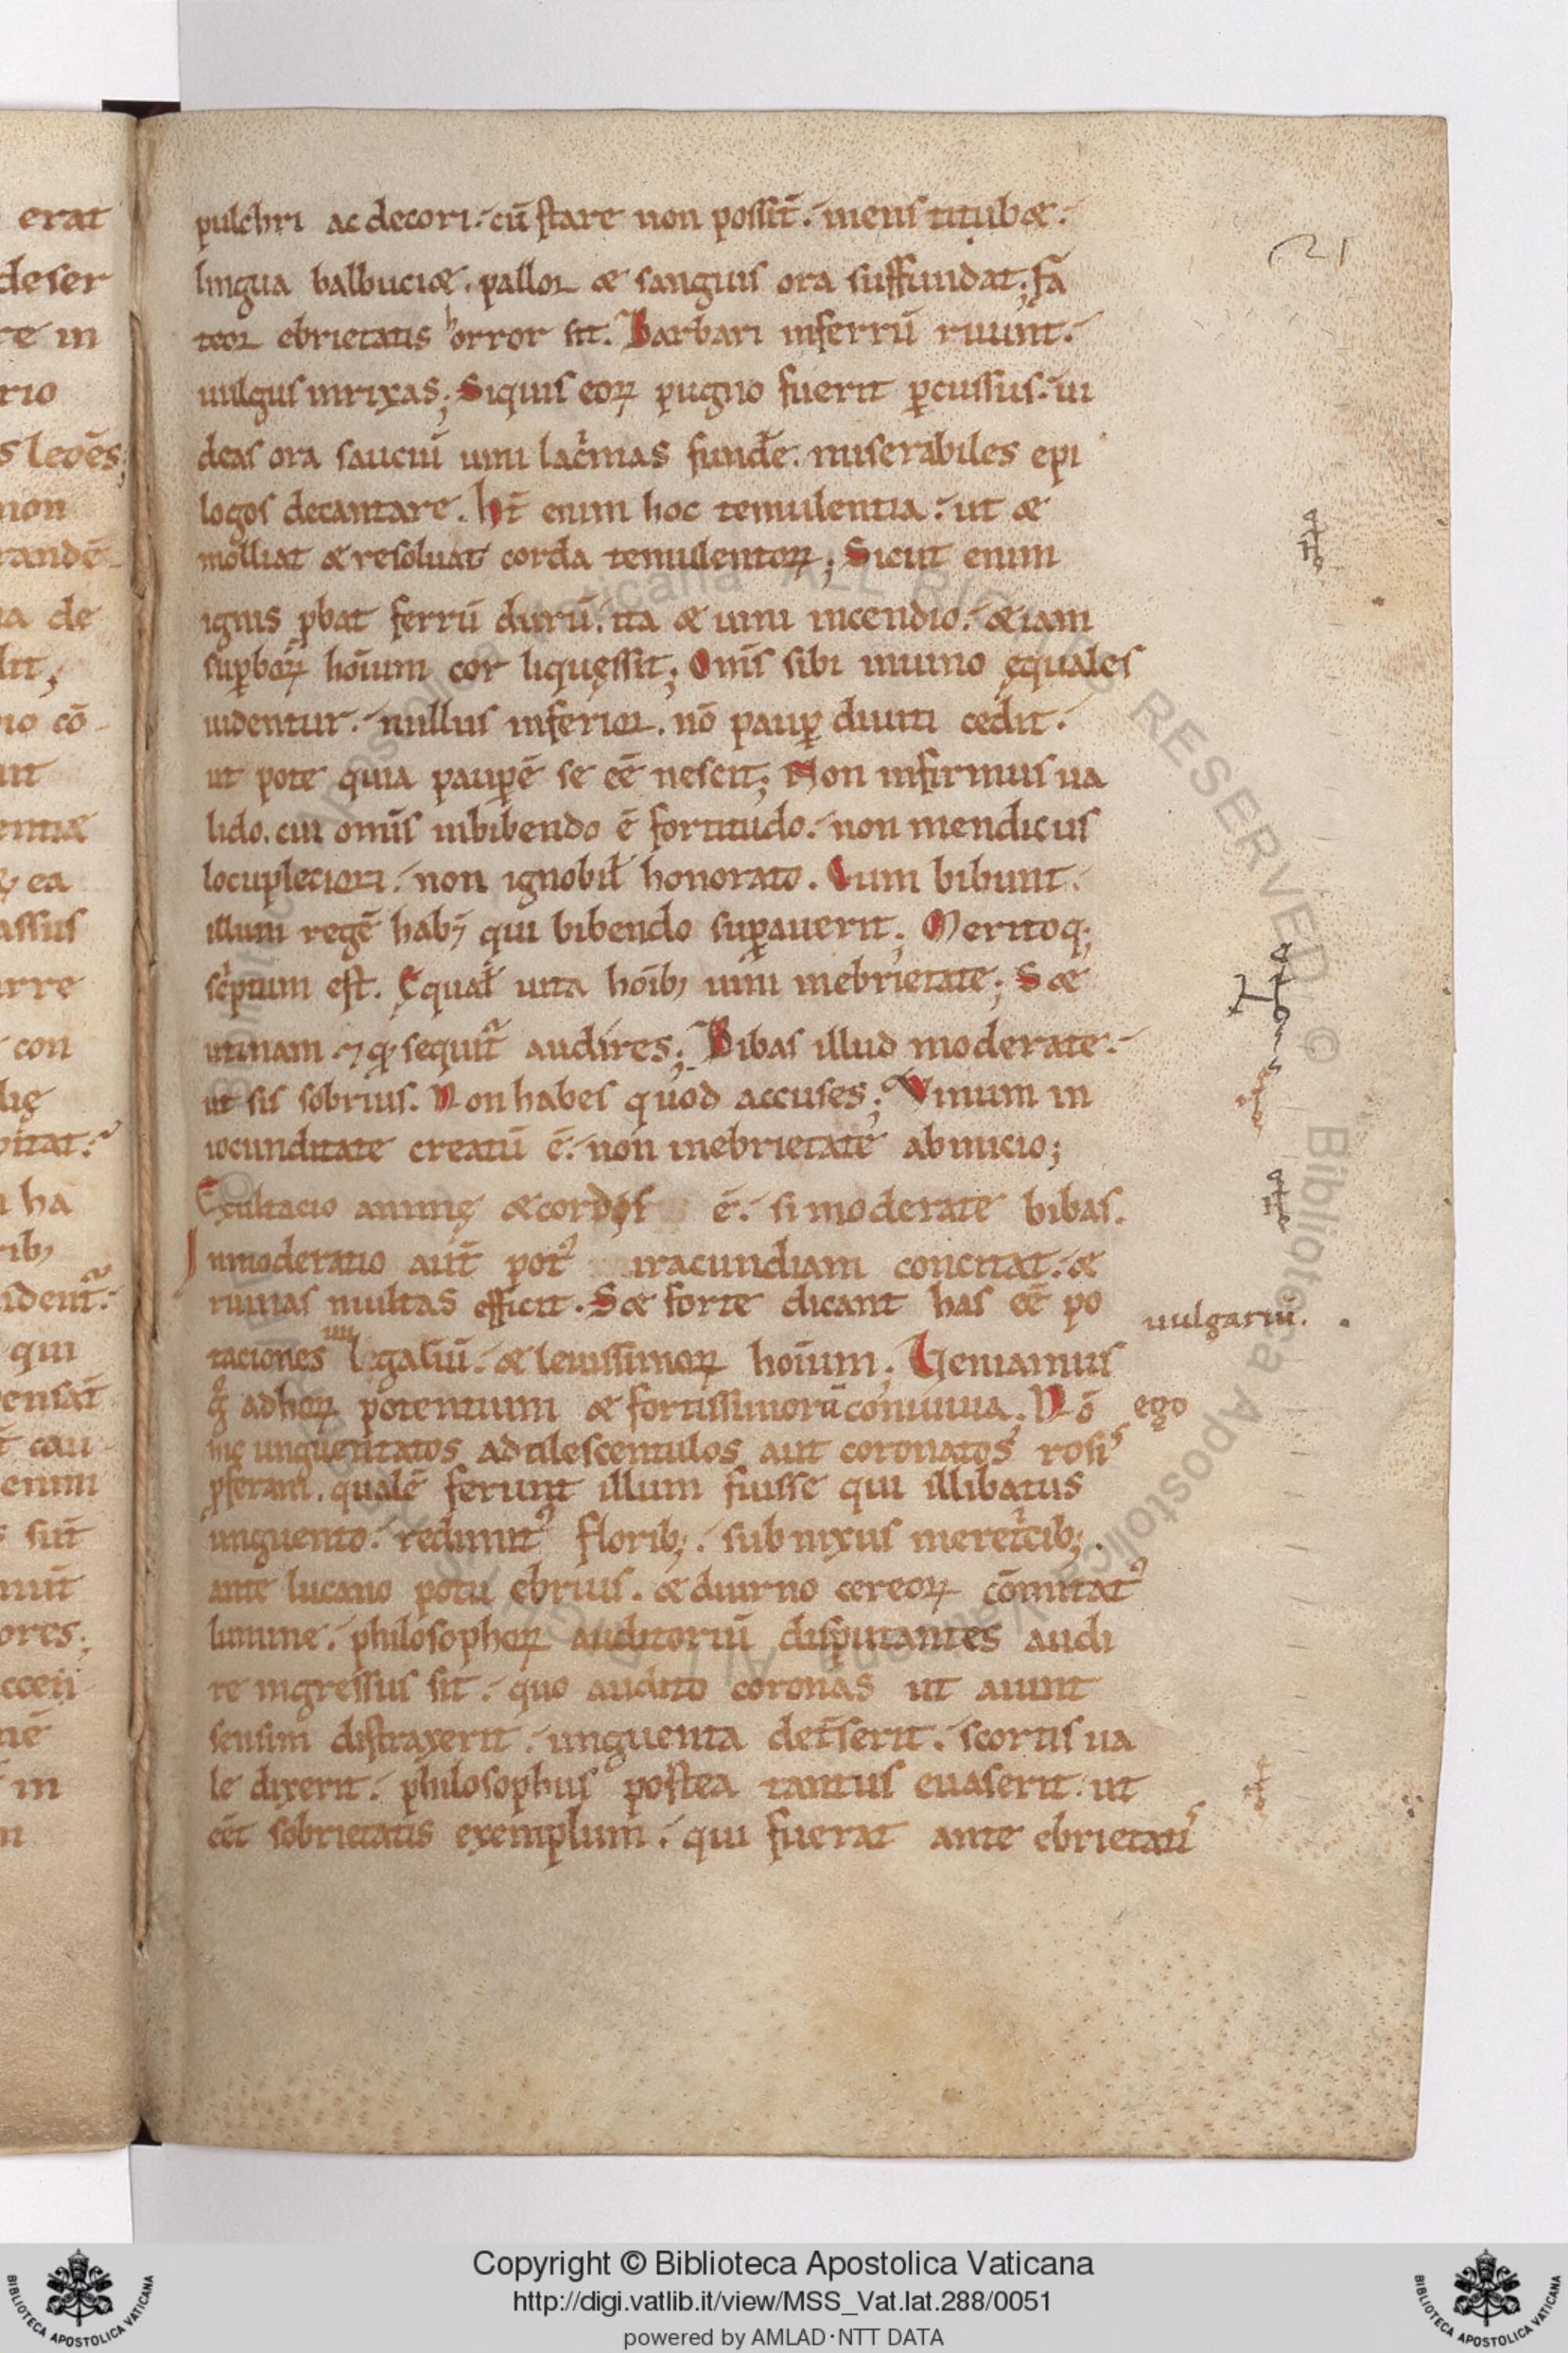 erat
deser
re in
rio
s leōes
non
randē
ua de
lit;
no cō
ut
entiæ
ea
assus
erre
con
lię
bitat.
ha
rib;
ident.
qui
ensat
cau
enim
sūt
ores;
nē
in
pulchri ac decori. cū stare non possīt. mens titubæ.
lingua balbuciæ. pallor æ sanguis ora suffundat; fa
teor ebrietatis horror sit. Barbari inferrū ruunt.
uulgus inrixas; Siquis eoꝝ pugno fuerit ꝑcussus. ui
deas ora sauciū uini lac̓mas fund̄e. miserabiles epi
logos decantare. ht̄ enim hoc temulentia. ut æ
molliat æ resoluat corda temulentoꝝ; Sicut enim
ignis ꝓbat ferrū durū. ita æ uini incendio. æiam
suꝑboꝝ hoīum cor liquęssit; Om̄s sibi inuino ęquales
uidentur. nullus inferior. nō pauꝑ diuiti cedit.
ut pote quia pauꝑē se eē nescit; Non infirmus ua
lido. cui om̄is inbibendo ē fortitudo. non mendicus
locupletiori. non ignobil̄ honorato. Cum bibunt.
illum regē hab; qui bibendo suꝑauerit; Meritoq;
sc̓ptum est. Ęqual̄ uita hoīb; uini inebrietate; Sæ
utinam ⁊ qđ sequit̃ audires; Bibas illud moderate.
ut sis sobrius. Non habes quod accuses; Vinum in
iocunditate creatū ē. non inebrietate abinicio;
Exultacio animę æcordis ē. si moderate bibas.
Inmoderatio aut̄ potꝰ iracundiam concitat. æ
ruinas multas efficit. Sæ forte dicant has eē po
uulgariū.
taciones legaliū. æ leuissimoꝝ hoīum; Veniamus
adhoꝝ potentium æ fortissimorū conuiuia. Nō
ego
hic unguentatos adulescentulos aut coronatos rosis
ꝓferam. qualē ferunt illum fuisse qui illibatus
unguento. redimitꝰ florib;. subnixus meret̓cib;.
ante lucano potu ebrius. æ diurno cereoꝝ cōmitatꝰ
lumine. philosophoꝝ auditoriū disputantes audi
re ingressus sit. quo audito coronas ut aiunt
sensim distraxerit. unguenta det̄serit. scortis ua
le dixerit. philosophus postea tantus euaserit. ut
eēt sobrietatis exemplum. qui fuerat ante ebrietatis
21
Copyright © Biblioteca Apostolica Vaticana
http://digi.vatlib.it/view/MSS_Vat.lat.288/0051
powered by AMLAD·NTT DATA
BIBLIOTECA APOSTOLICA VATICANA
BIBLIOTECA APOSTOLICA VATICANA